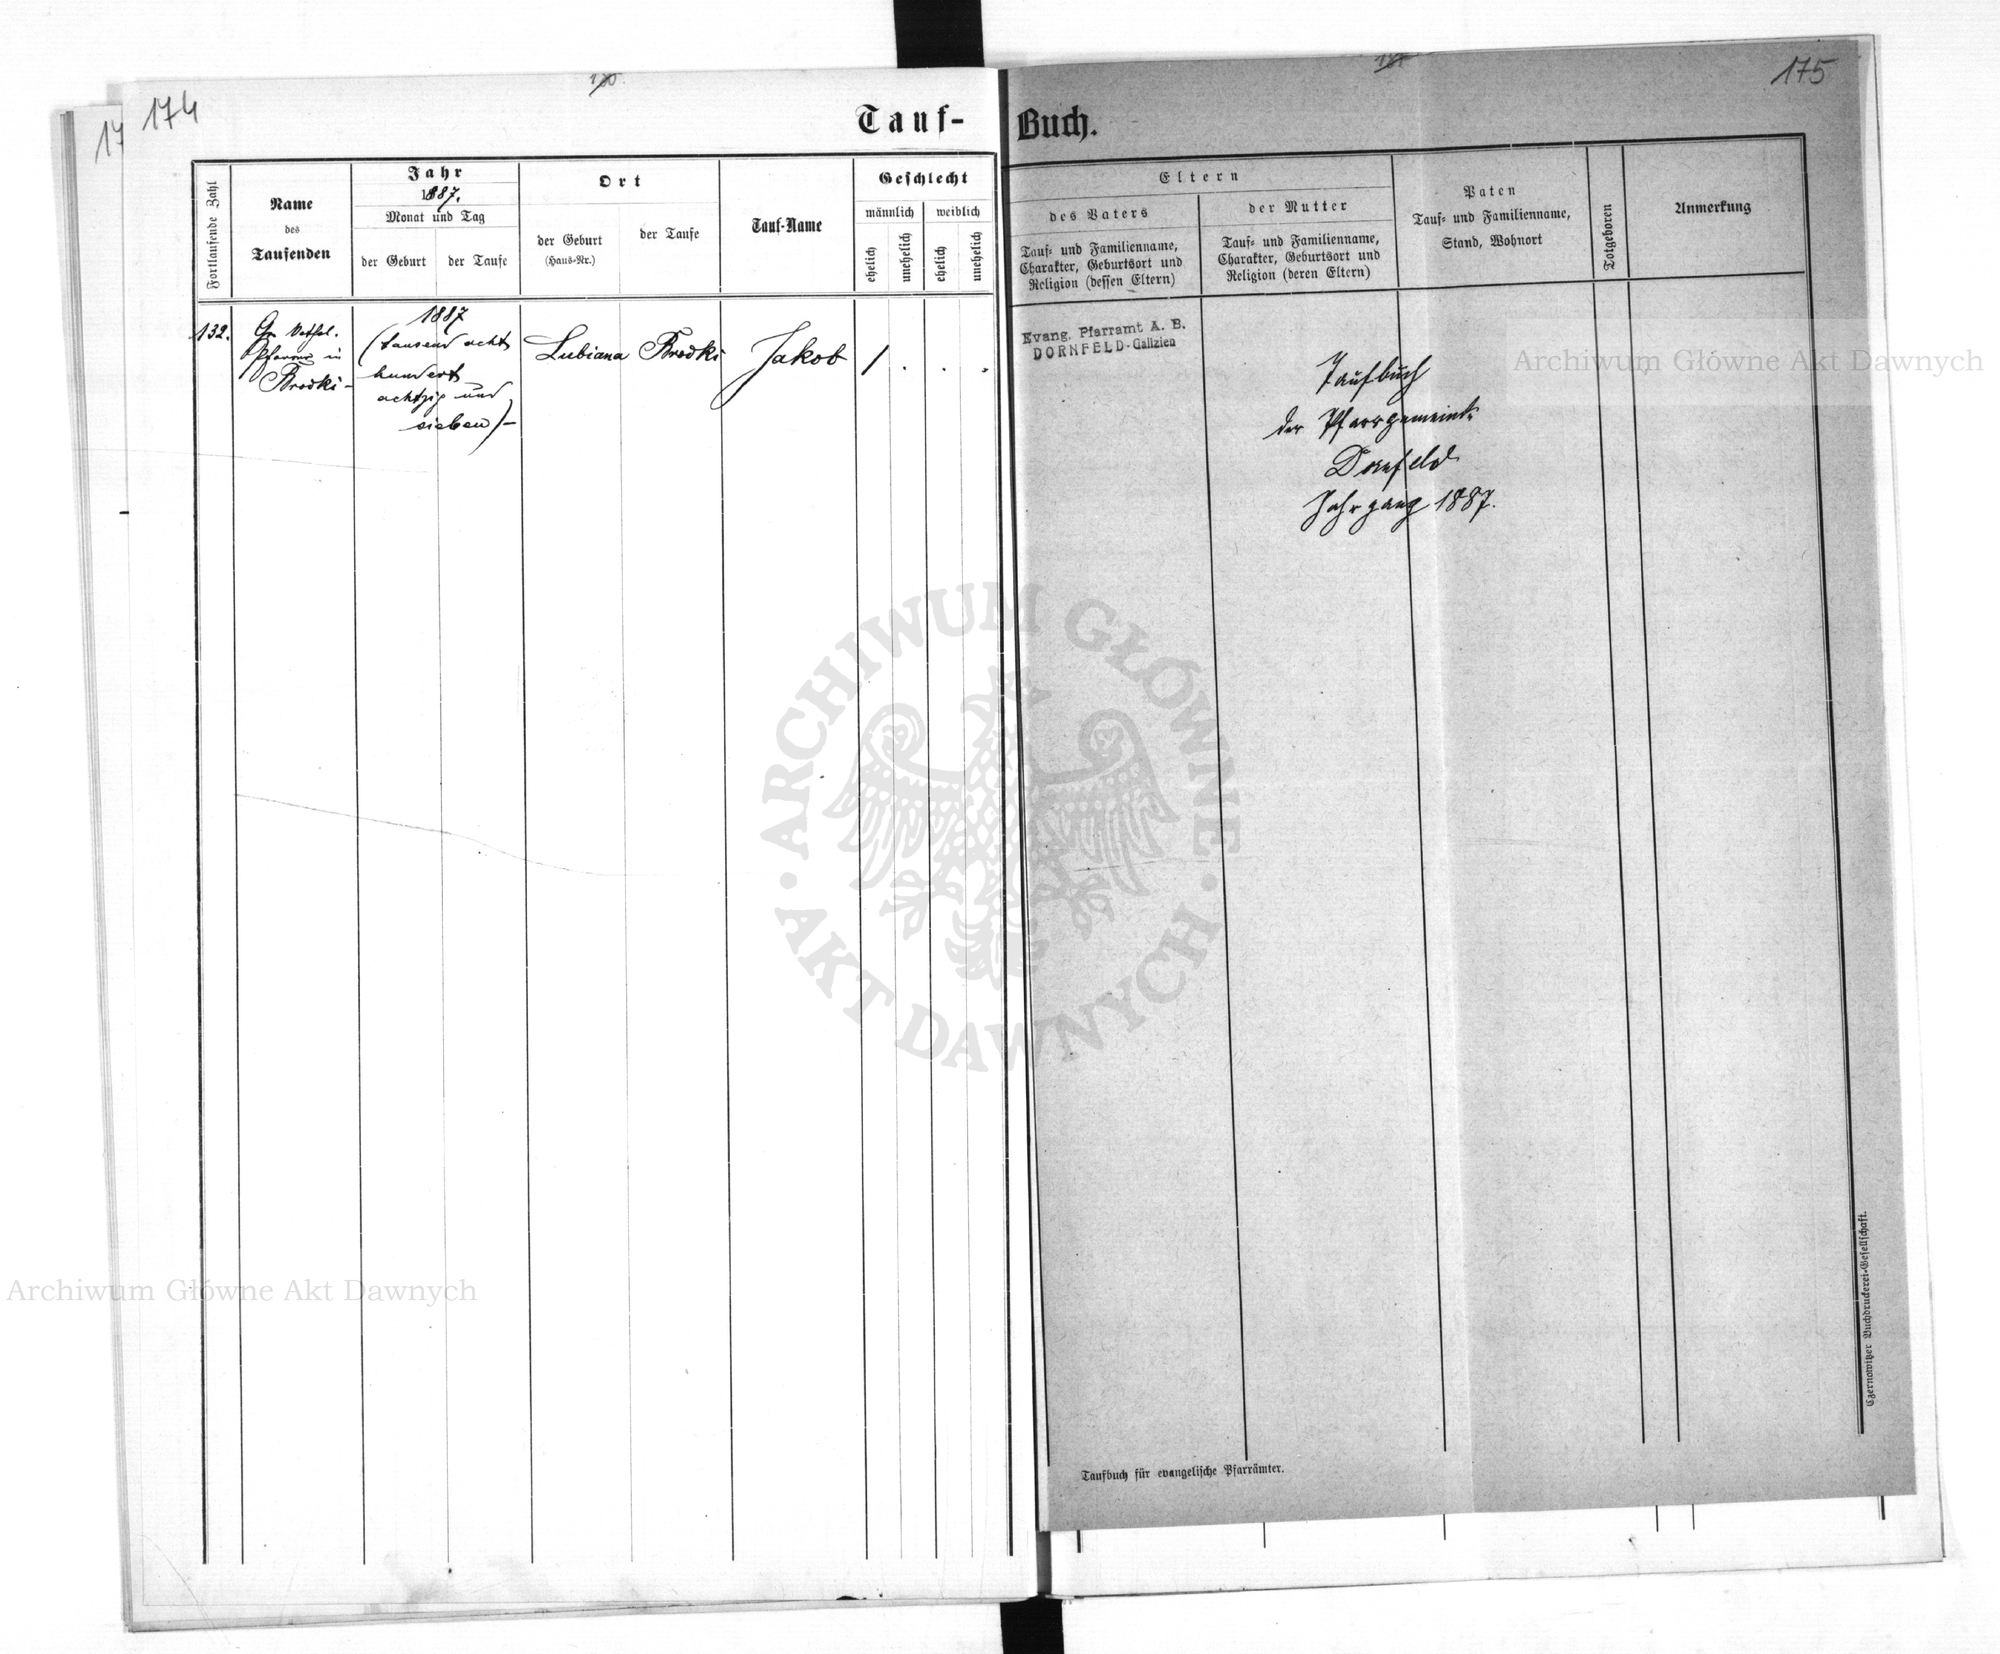 174
175
Tauf-Buch.
Fortlaufende Zahl
Name
des
Taufenden
Jahr
1887.
Monat und Tag
der Geburt
der Taufe
Ort
der Geburt
(Haus-Nr.)
der Taufe
Tauf-Name
Geschlecht
männlich
weiblich
ehelich
unehelich
ehelich
unehelich
Eltern
des Vaters
Tauf- und Familienname,
Charakter, Geburtsort und
Religion (dessen Eltern)
der Mutter
Tauf- und Familienname,
Charakter, Geburtsort und
Religion (deren Eltern)
Paten
Tauf- und Familienname,
Stand, Wohnort
Totgeboren
Anmerkung
132.
Pfarrer in
Brodki-
1887
(tausend acht
hundert
achtzig und
sieben)-
Lubiana
Brodki
Jakob
1 . . .
Evang. Pfarramt A. B.
DORNFELD-Galizien
Taufbuch
der Pfarrgemeinde
Dornfeld
Jahrgang 1887.
Taufbuch für evangelische Pfarrämter.
Czernowitzer Buchdruckerei-Gesellschaft.
Archiwum Główne Akt Dawnych
Archiwum Główne Akt Dawnych
ARCHIWUM GŁÓWNE · AKT DAWNYCH ·